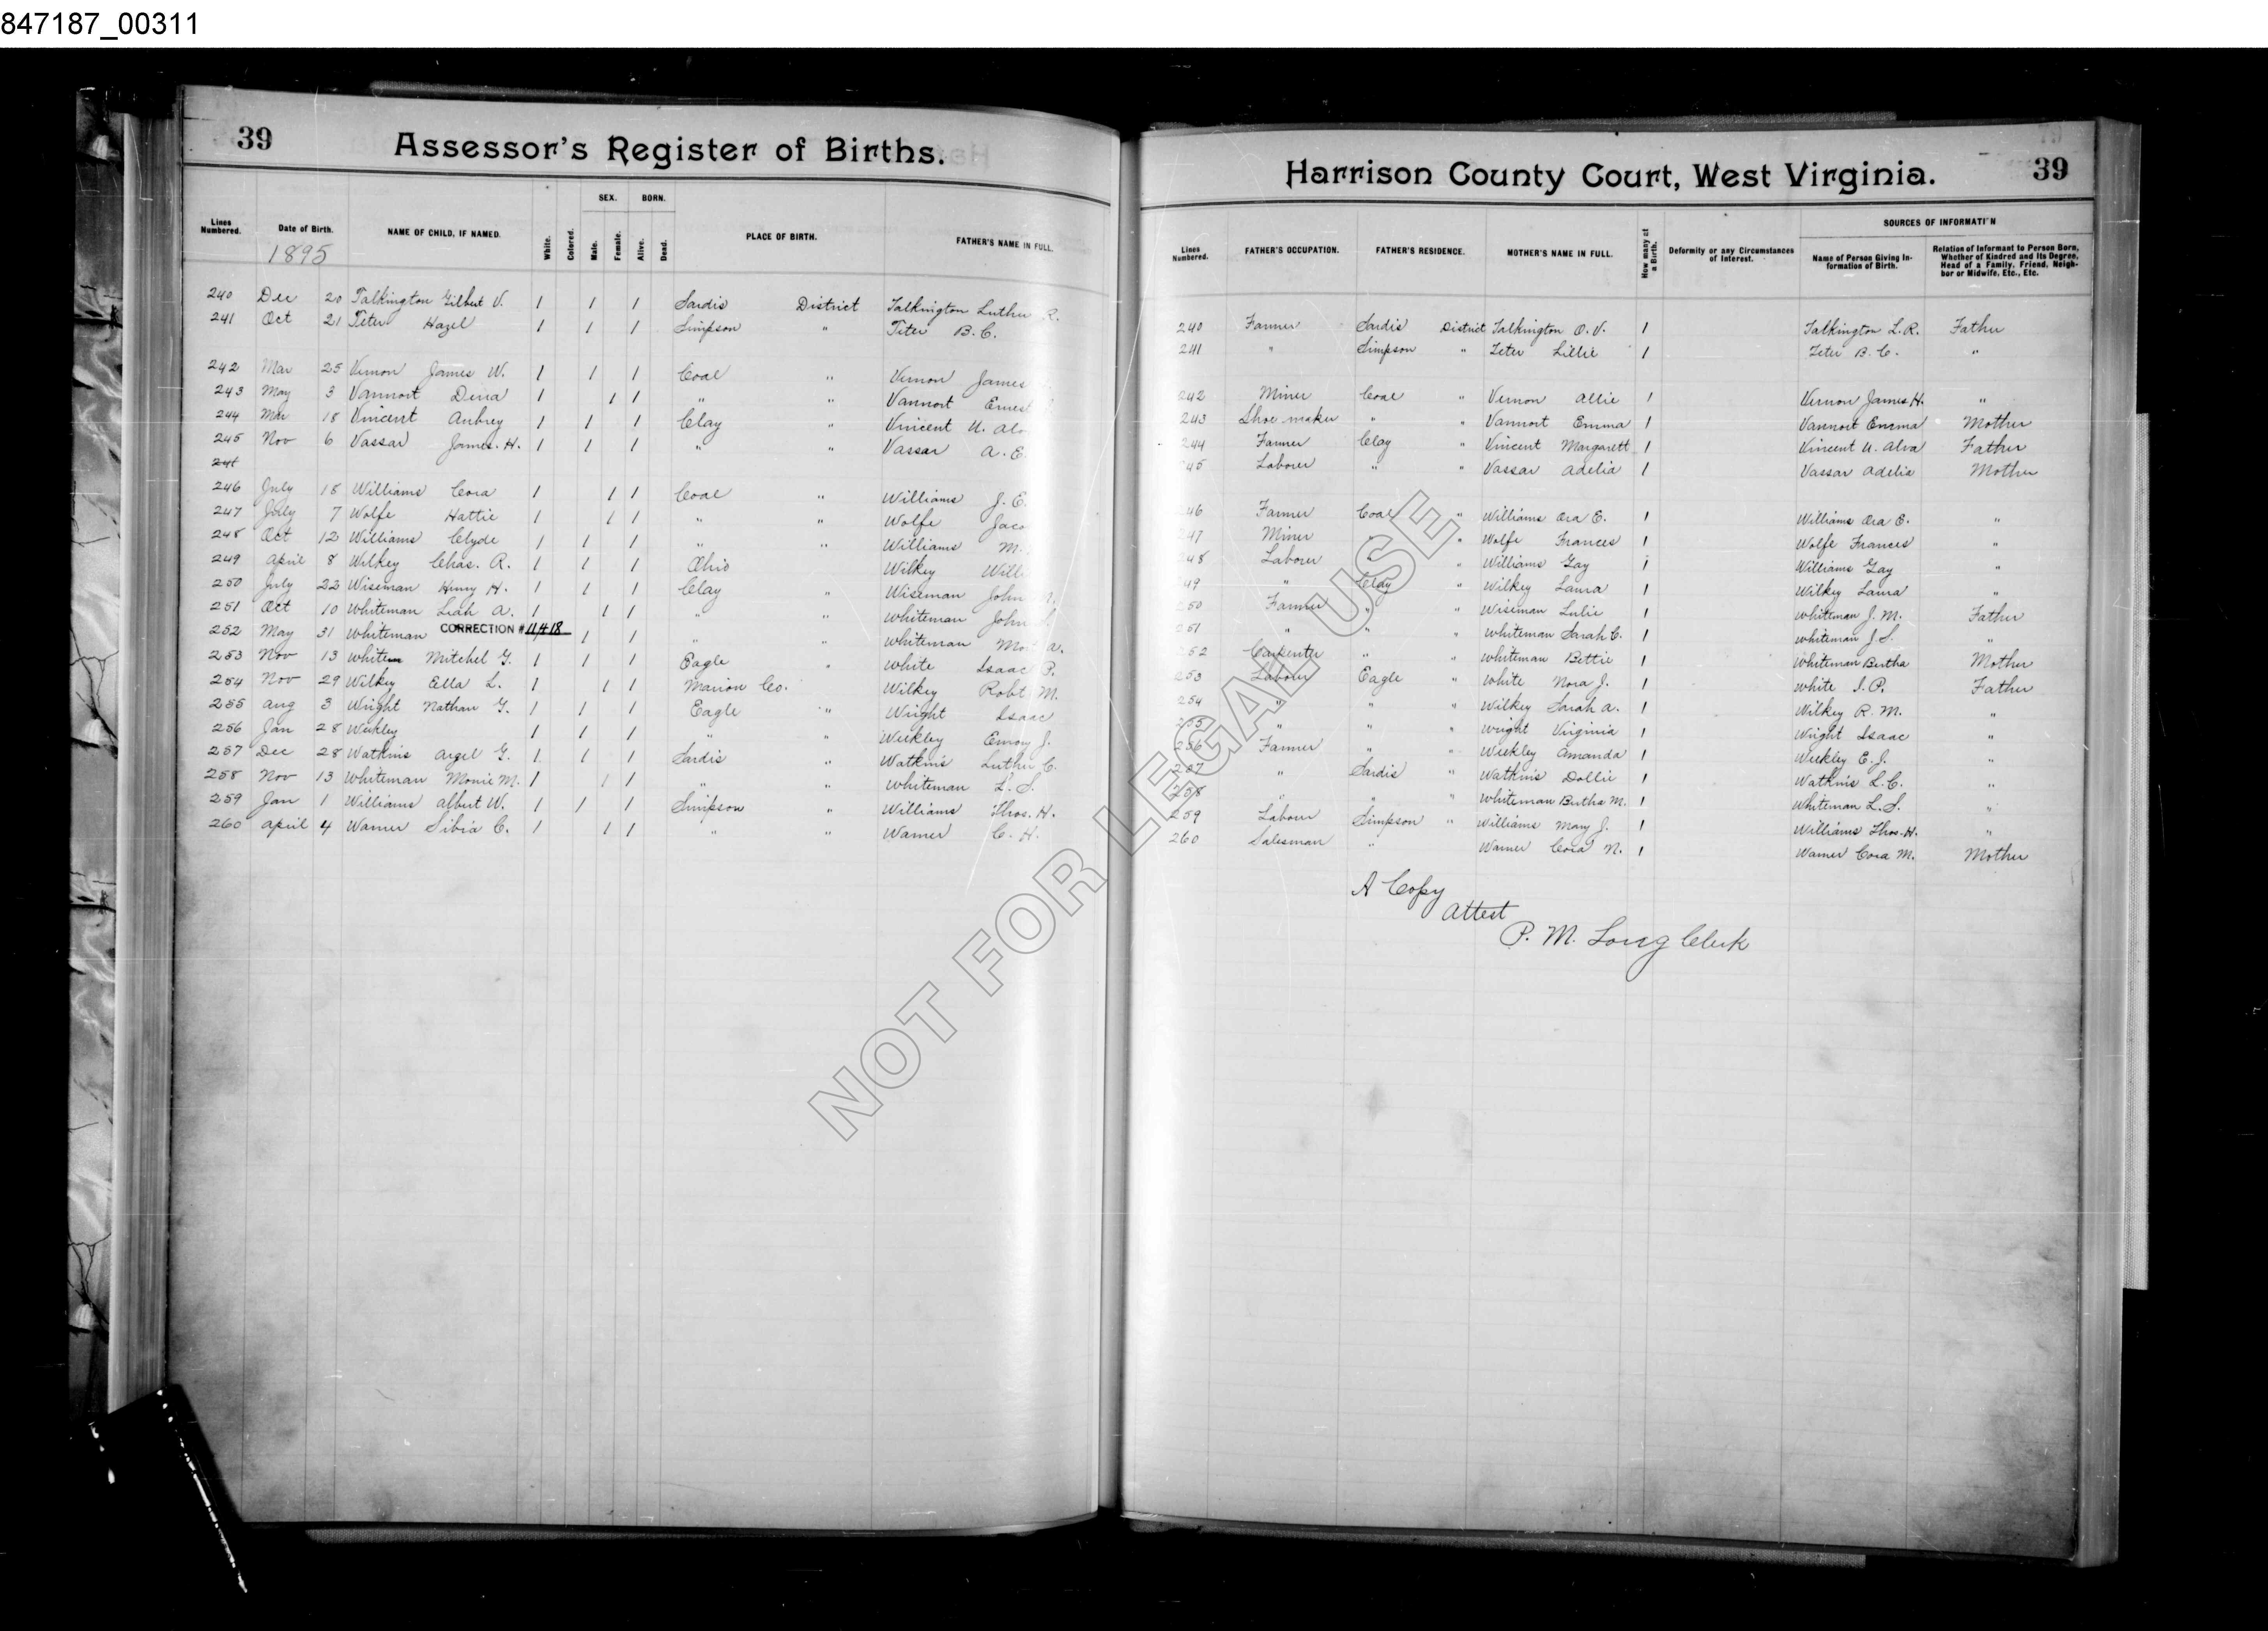 847187_00311
39
Assessor's Register of Births.
Lines Numbered.
Date of Birth.
1895
NAME OF CHILD, IF NAMED.
White.
Colored.
SEX.
Male.
Female.
BORN.
Alive.
Dead.
PLACE OF BIRTH.
FATHER'S NAME IN FULL.
240 Dec 20 Talkington Gilbert V. 1 1 1 Sardis District Talkington Luther R.
241 Oct 21 Teter Hazel 1 1 1 Simpson " Teter B. C.
242 Mar 25 Vernon James W. 1 1 1 Coal " Vernon James
243 May 3 Vannort Dena 1 1 1 " " Vannort Ernest
244 Mar 18 Vincent Aubrey 1 1 1 Clay " Vincent U. Alv
245 Nov 6 Vassar James. H. 1 1 1 " " Vassar A. E.
246 July 18 Williams Cora 1 1 1 Coal " Williams J. E.
247 July 7 Wolfe Hattie 1 1 1 " " Wolfe Jaco
248 Oct 12 Williams Clyde 1 1 1 " " Williams M.
249 April 8 Wilkey Chas. R. 1 1 1 Ohio Wilkey Will
250 July 22 Wiseman Henry H. 1 1 1 Clay " Wiseman John M.
251 Oct 10 Whiteman Leah A. 1 1 1 " " Whiteman John S.
252 May 31 Whiteman CORRECTION # 11418 1 1 " " Whiteman A.
253 Nov 13 White Mitchel G. 1 1 1 Eagle " White Isaac P.
254 Nov 29 Wilkey Ella L. 1 1 1 Marion Co. Wilkey Robt M.
255 Aug 3 Wright Nathan G. 1 1 1 Eagle " Wright Isaac
256 Jan 28 Weekley 1 1 1 " " Weekley Emory J.
257 Dec 28 Watkins Argel G. 1 1 1 Sardis " Watkins Luther C.
258 Nov 13 Whiteman Monie M. 1 1 1 " " Whiteman L. S.
259 Jan 1 Williams Albert W. 1 1 1 Simpson " Williams Thos. H.
260 April 4 Warner Sibia C. 1 1 1 " " Warner C. H.
Harrison County Court, West Virginia.
39
Lines Numbered.
FATHER'S OCCUPATION.
FATHER'S RESIDENCE.
MOTHER'S NAME IN FULL.
How many at a Birth.
Deformity or any Circumstances of Interest.
SOURCES OF INFORMATI'N
Name of Person Giving Information of Birth.
Relation of Informant to Person Born, Whether of Kindred and Its Degree, Head of a Family, Friend, Neighbor or Midwife, Etc., Etc.
240 Farmer Sardis District Talkington O. V. 1 Talkington L. R. Father
241 " Simpson " Teter Lillie 1 Teter B. C. "
242 Miner Coal " Vernon Allie 1 Vernon James H. "
243 Shoe maker " " Vannort Emma 1 Vannort Emma Mother
244 Farmer Clay " Vincent Margarett 1 Vincent U. Alva Father
45 Laborer " " Vassar Adelia 1 Vassar Adelia Mother
46 Farmer Coal " Williams Ora E. 1 Williams Ora E. "
47 Miner " " Wolfe Frances 1 Wolfe Frances "
48 Laborer " " Williams Gay 1 Williams Gay "
49 " Clay " Wilkey Laura 1 Wilkey Laura "
50 Farmer " " Wiseman Lulie 1 Whiteman J. M. Father
51 " " " Whiteman Sarah C. 1 Whiteman J. S. "
52 Carpenter " " Whiteman Bettie 1 Whiteman Bertha Mother
253 Labour Eagle " White Nora J. 1 White I. P. Father
254 " " " Wilkey Sarah A. 1 Wilkey R. M. "
255 " " " Wright Virginia 1 Wright Isaac "
256 Farmer " " Weekley Amanda 1 Weekley E. J. "
257 " Sardis " Watkins Dollie 1 Watkins L. C. "
258 " " " Whiteman Bertha M. 1 Whiteman L. S. "
259 Labour Simpson " Williams Mary J. 1 Williams Thos. H. "
260 Salesman " Warner Cora N. 1 Warner Cora M. Mother
A Copy
Attest
P. M. Long Clerk
NOT FOR LEGAL USE